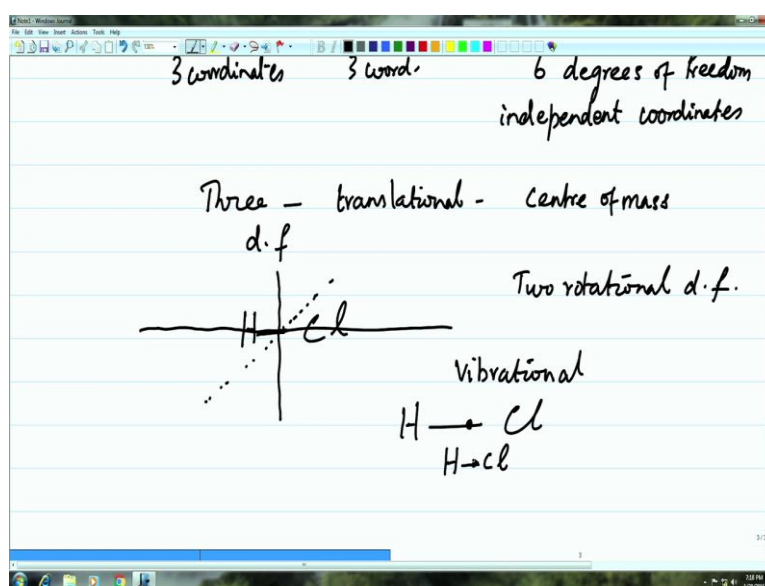 Note1 - Windows Journal
File Edit View Insert Actions Tools Help
B I
3 coordinates 3 coord. 6 degrees of freedom
independent coordinates
Three - translational - Centre of mass
d.f
Two rotational d.f.
H Cl
Vibrational
H Cl
H→Cl
3
7:18 PM